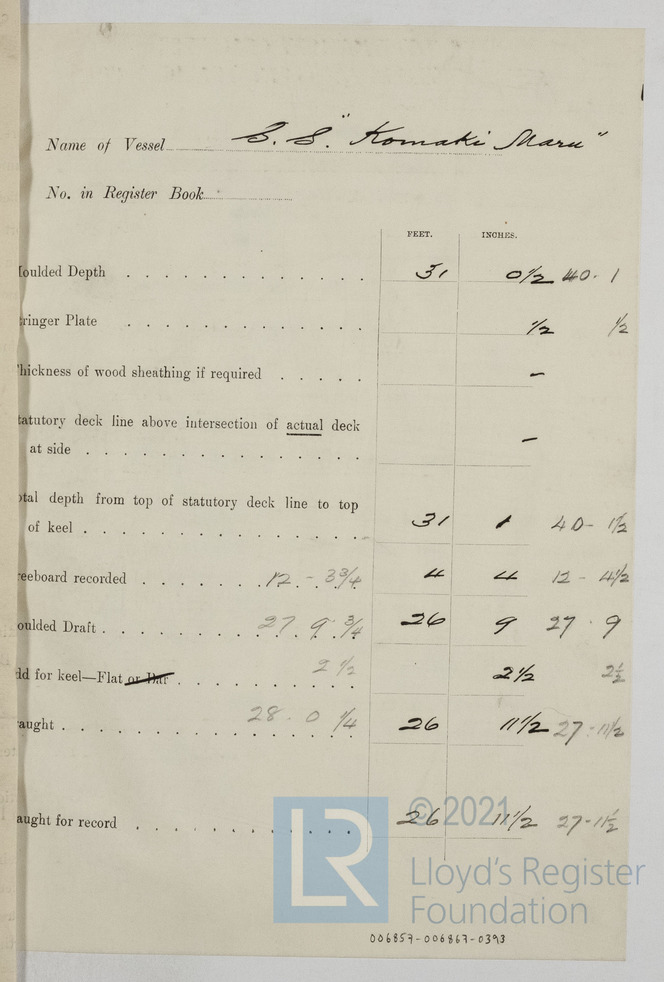 Name of Vessel S. S. "Komaki Maru"
No. in Register Book
FEET. INCHES.
oulded Depth 31 0 1/2 40 - 1
ringer Plate 1/2 1/2
hickness of wood sheathing if required –
tatutory deck line above intersection of actual deck
at side –
tal depth from top of statutory deck line to top
of keel 31 1 40 - 1 1/2
reeboard recorded 12 - 3 3/4 4 4 12 - 4 1/2
oulded Draft 27 9 3/4 26 9 27 - 9
dd for keel—Flat or Bar 2 1/2 2 1/2 2 1/2
aught 28 - 0 1/4 26 11 1/2 27 - 11 1/2
aught for record 26 11 1/2 27 - 11 1/2
© 2021
LR
Lloyd's Register
Foundation
006857-006867-0393